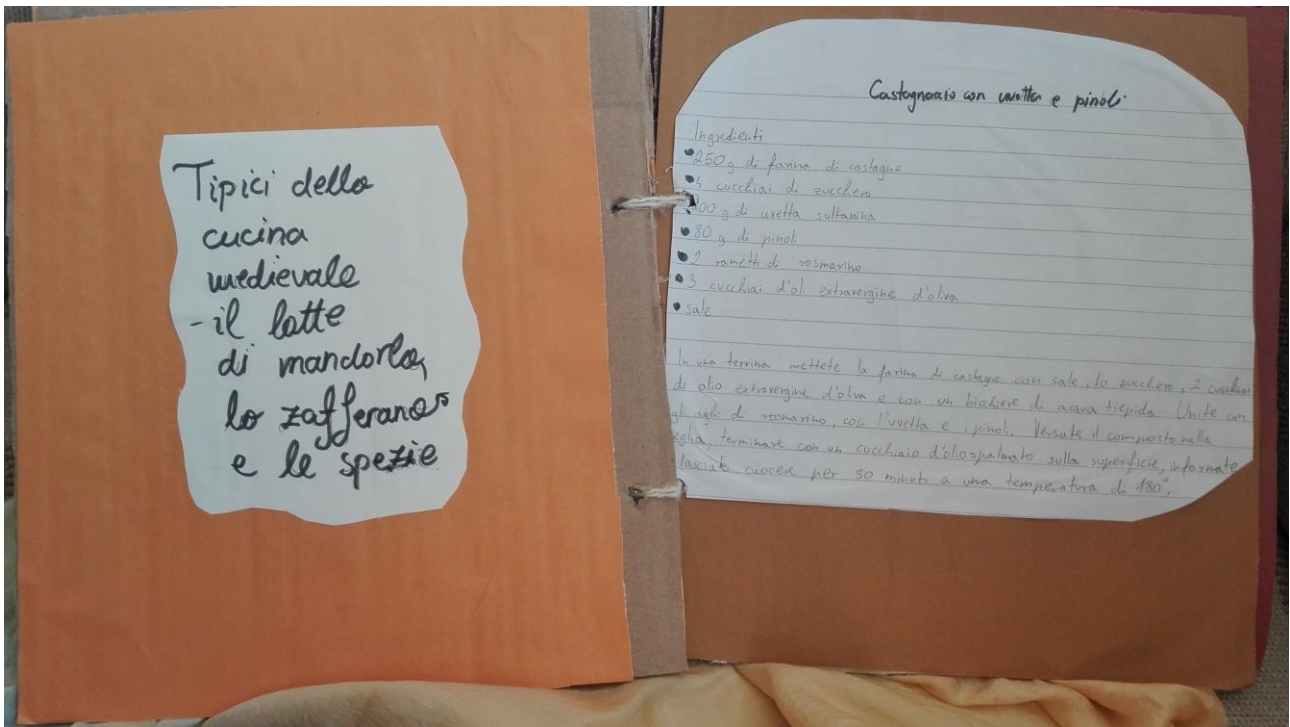 Tipici della
cucina
medievale
- il latte
di mandorla,
lo zafferano
e le spezie
Castagnaccio con uvetta e pinoli
Ingredienti
• 250 g di farina di castagne
• 4 cucchiai di zucchero
100 g di uvetta sultanina
• 80 g di pinoli
• 2 rametti di rosmarino
• 3 cucchiai d'oli extravergine d'oliva
• sale
In una terrina mettete la farina di castagne con sale, lo zucchero, 2 cucchiai
di olio extravergine d'oliva e con un bicchiere di acqua tiepida. Unite con
gli aghi di rosmarino, con l'uvetta e i pinoli. Versate il composto nella
teglia, terminare con un cucchiaio d'olio spalmato sulla superficie, infornate
lasciate cuocere per 30 minuti a una temperatura di 180°.